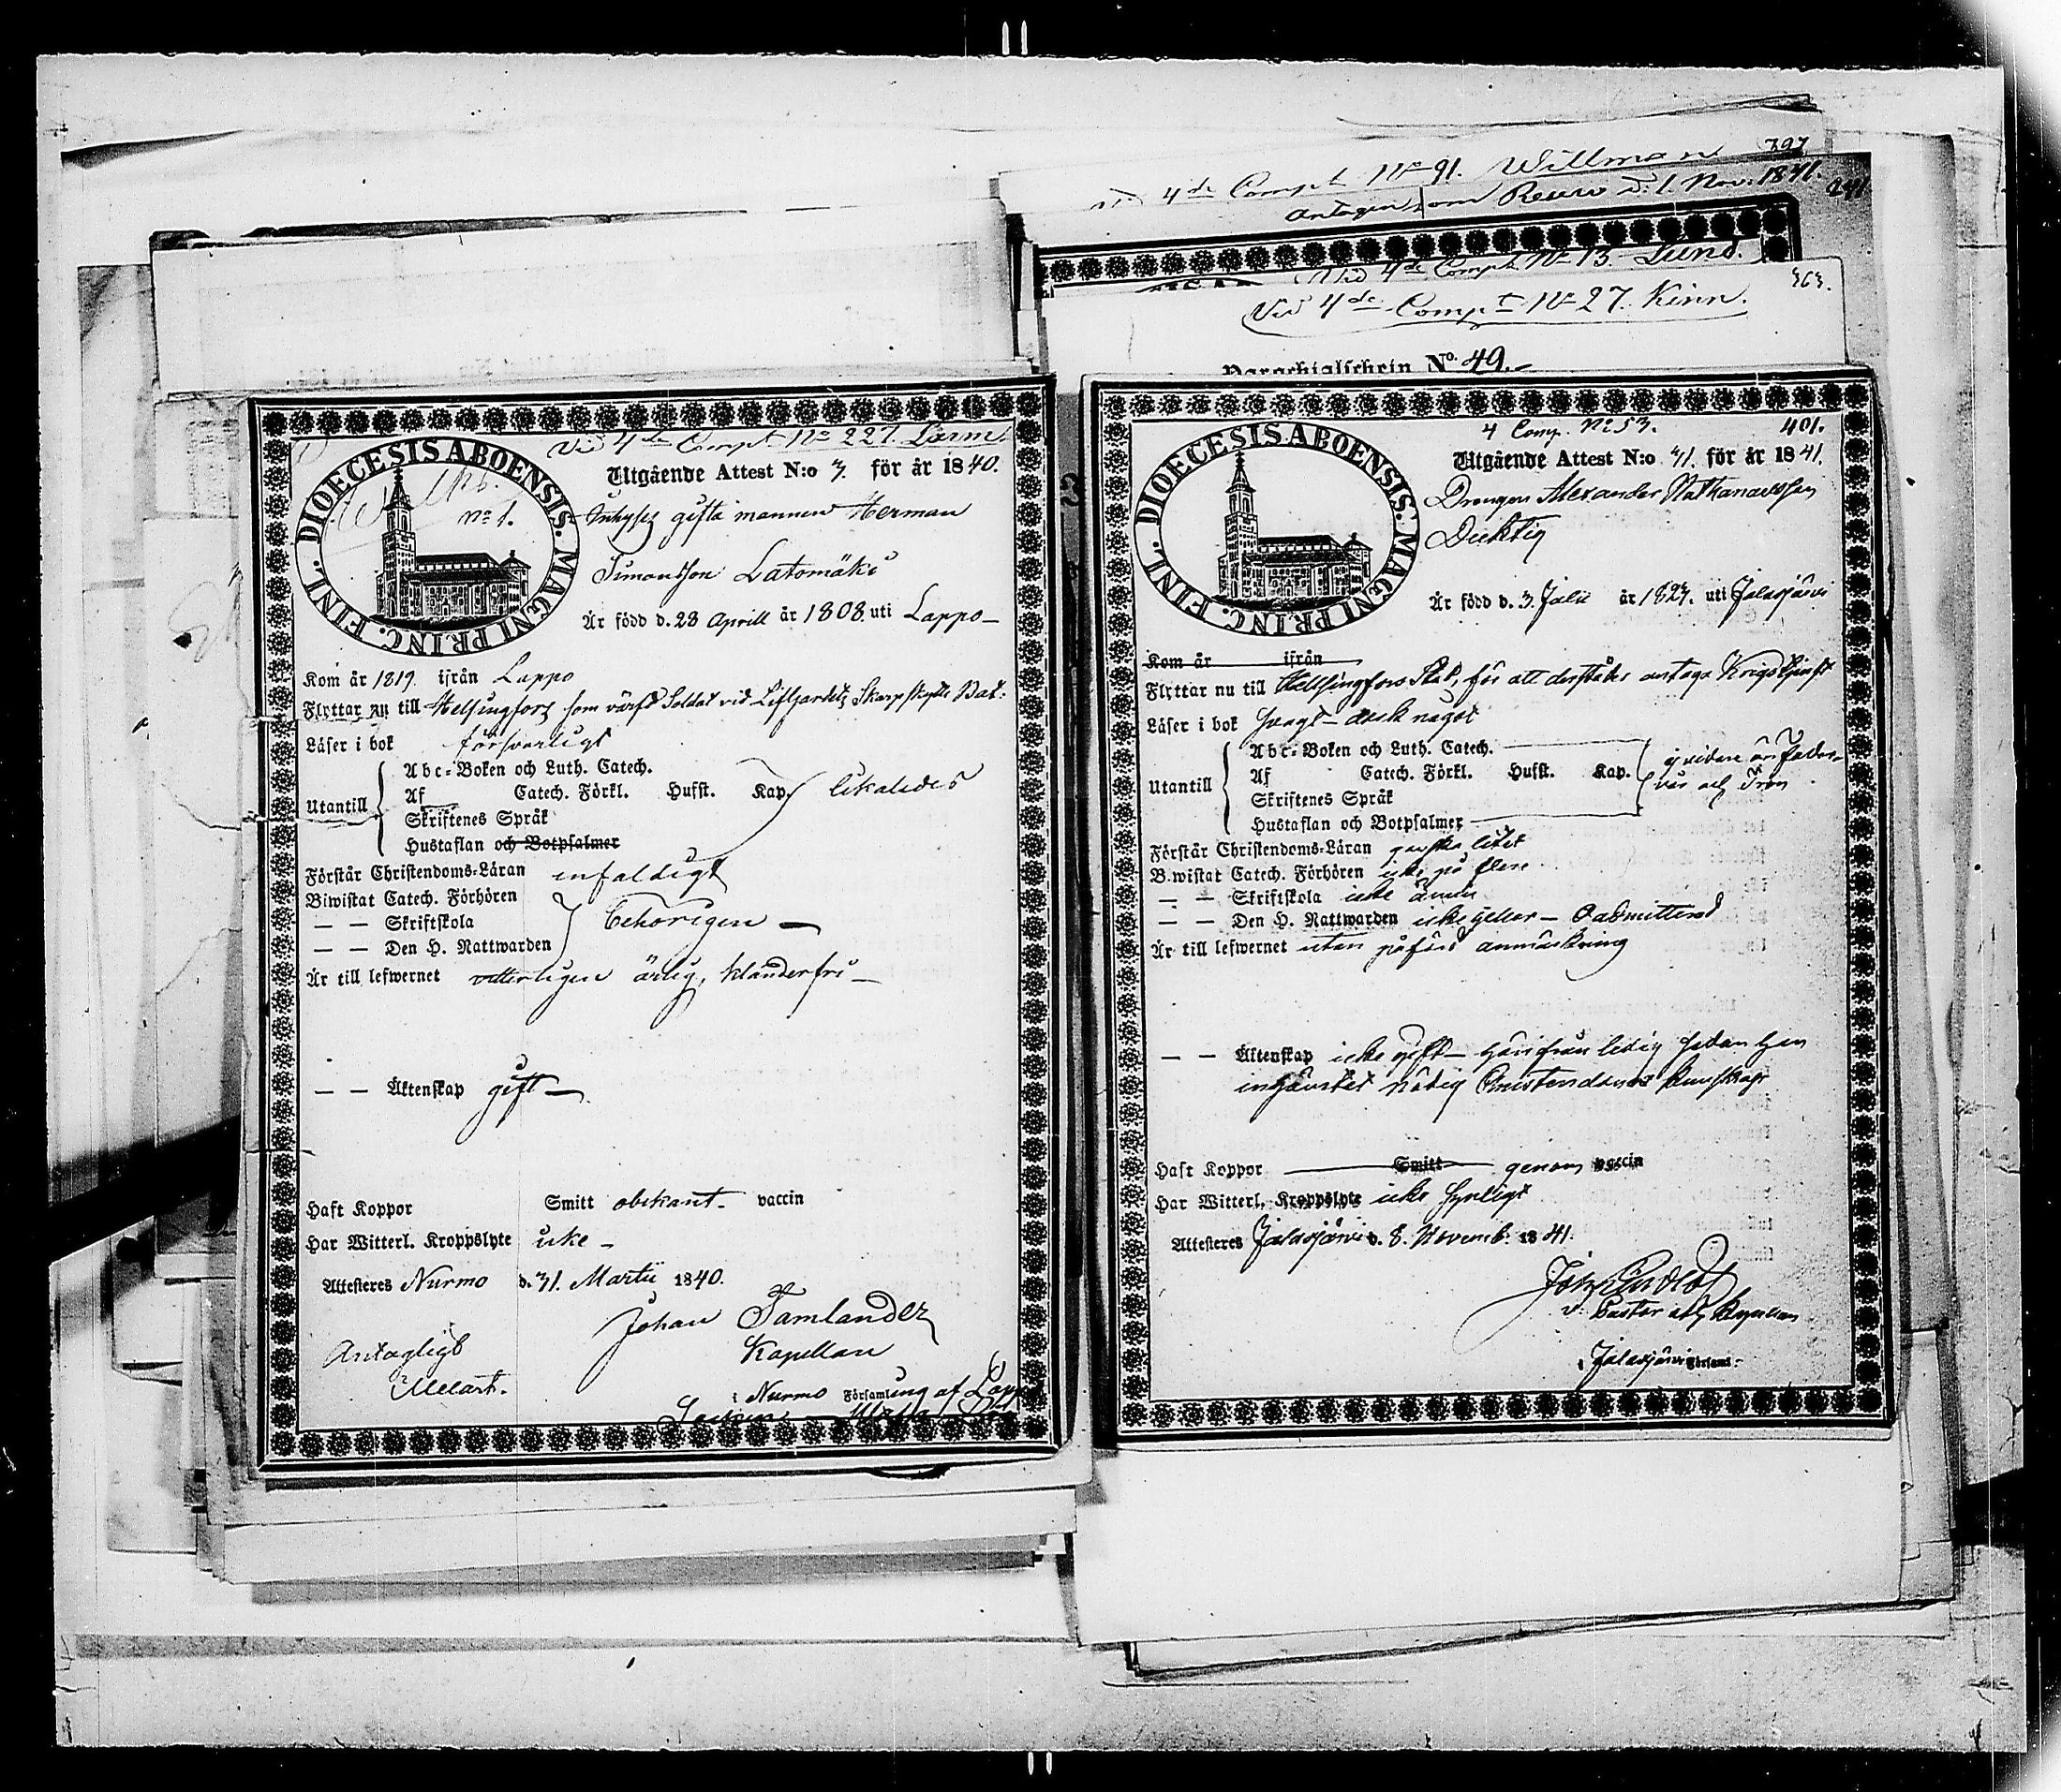 797
4de Compt No 91. Willman
Antagen som Recru d. 1. Nov: 1841.
Vid 4de Compt No 13. Lund.
363.
Vid 4de Compt No 27. Kinn.
Parochialschein No. 49.
Vid 4de Compt No 227. Larm.
DIOECESIS ABOENSIS. MAGNI PRINC. FINL.
No 1.
Utgående Attest N:o 3. för år 1840.
Inhyses gifta mannen Herman
Simonsson Latomäki
Är född d. 23 Aprill år 1808. uti Lappo
Kom år 1819. ifrån Lappo
Flyttar nu till Helsingfors som värfd Soldat vid Lifgardets Skarpskytte Bat:
Läser i bok försvarligt
Utantill
Abc-Boken och Luth. Catech.
Af Catech. Förkl. Hust. Kap. likaledes
Skriftenes Språk
Hustaflan och Botpsalmer
Förstår Christendoms-Läran enfaldigt
Biwistat Catech. Förhören
— — Skriftskola behörigen —
— — Den H. Nattwarden
Är till lefwernet vitterligen ärlig, klanderfri —
— — Äktenskap gift —
Haft Koppor Smitt obekant. vaccin
Har Witterl. Kroppslyte icke —
Attesteres Nurmo d. 31. Martii 1840.
Johan Tamlander
Kapellan
Antagligt
Melart.
i Nurmo Församling af Lappo
4 Comp. No 53. 401.
DIOECESIS ABOENSIS. MAGNI PRINC. FINL.
Utgående Attest N:o 31. för år 1841.
Drengen Alexander Nathanaelsson
Ducktig
Är född d. 3. Julii år 1823. uti Jalasjärvi
Kom år ifrån
Flyttar nu till Helsingfors Stad, för att derstädes antaga Krigstjenst
Läser i bok svagt – dock något
Utantill
Abc-Boken och Luth. Catech.
Af Catech. Förkl. Hust. Kap. ej vidare än Fader
vår och Tron
Skriftenes Språk
Hustaflan och Botpsalmer
Förstår Christendoms-Läran ganska litet
Biwistat Catech. Förhören icke på flere
— — Skriftskola icke ännu
— — Den H. Nattwarden icke heller – Oadmitterad
Är till lefwernet utan påförd anmärkning
— — Äktenskap icke gift – härifrån ledig sedan han
inhämtat nödig Christendoms kunskap
Haft Koppor Smitt genom vaccin
Har Witterl. Kroppslyte icke synligt
Attesteres Jalasjärvi d. 8. Novemb: 1841.
v. Pastor och Kapellan
i Jalasjärvi Församl: